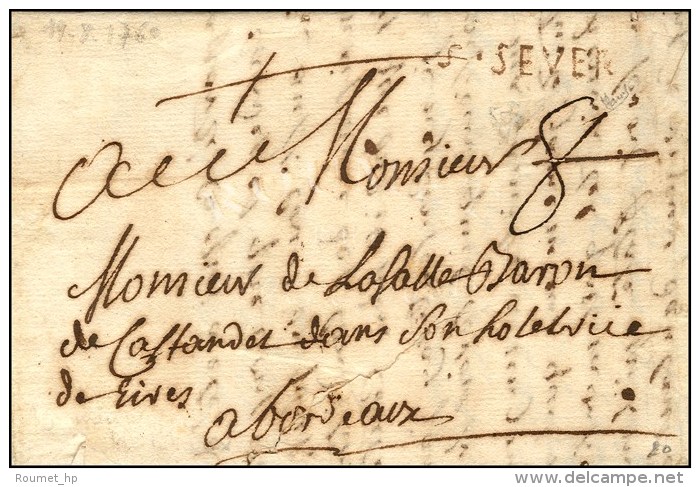 S. SEVER
A Monsieur 8
Monsieur de LaSalle Baron
de Castandet dans son hotel rüe
de
a bordeaux
20
Roumet_hp
delcampe.net